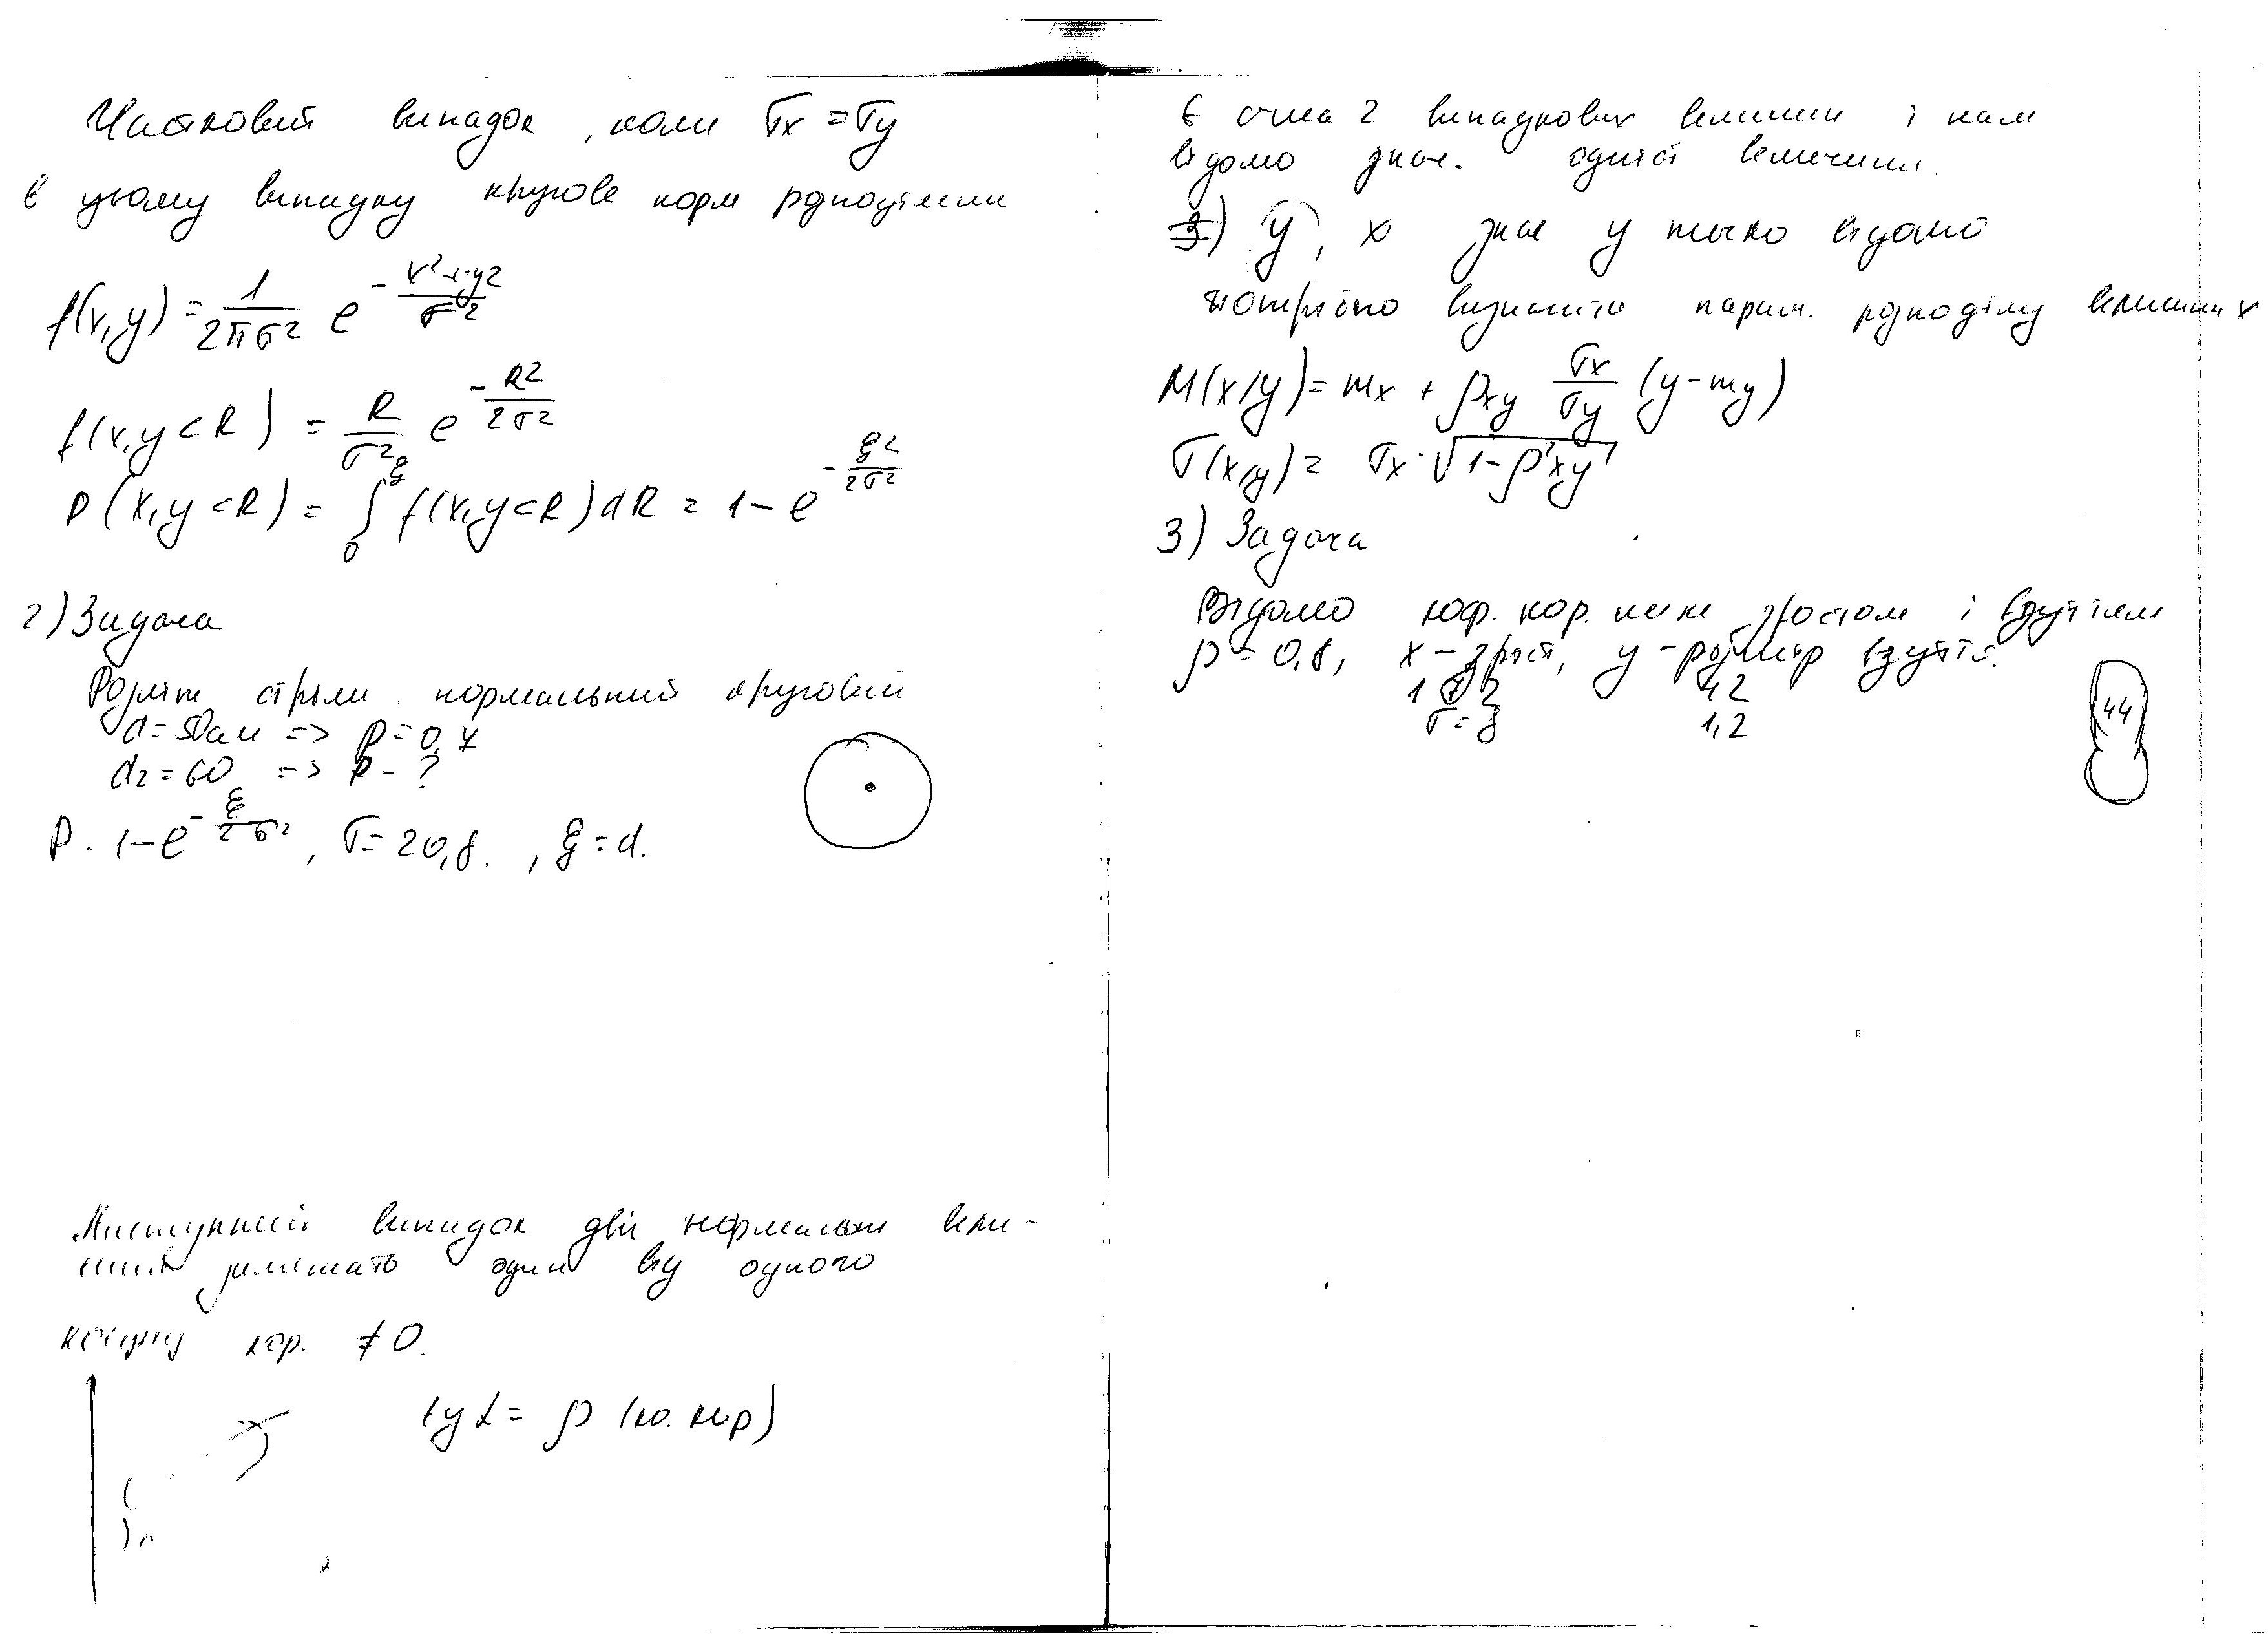 Частковий випадок, коли σx = σy
в цьому випадку кругове норм розподілення
f(x,y) = 1/(2πσ²) e^(-(x²+y²)/σ²)
f(x,y<R) = R/σ² e^(-R²/(2σ²))
P(x,y<R) = ∫₀^ξ f(x,y<R)dR = 1-e^(-ξ²/(2σ²))
2) Задача
стріли нормальний круговий
d=50 => p=0,7
d₂=60 => P-?
P. 1-e^(-ξ/(2σ²)), σ=20,8., ξ=d.
Наступний випадок дві нормальні вели-
залежать один від одного
кор. ≠0.
tgα = ρ (ко. кор)
Є 2 випадкових величини і нам
відомо знач. однієї величини.
3) y, x знач y відомо
потрібно визначити парам. розподілу величини x
M(x/y) = mx + ρxy σx/σy (y-my)
σ(x/y) = σx·√(1-ρ²xy)
3) Задача
Відомо коф. кор. між зростом і взуттям
ρ=0,8, x-зріст, y-розмір взуття.
172 42
σ=8 1,2
44